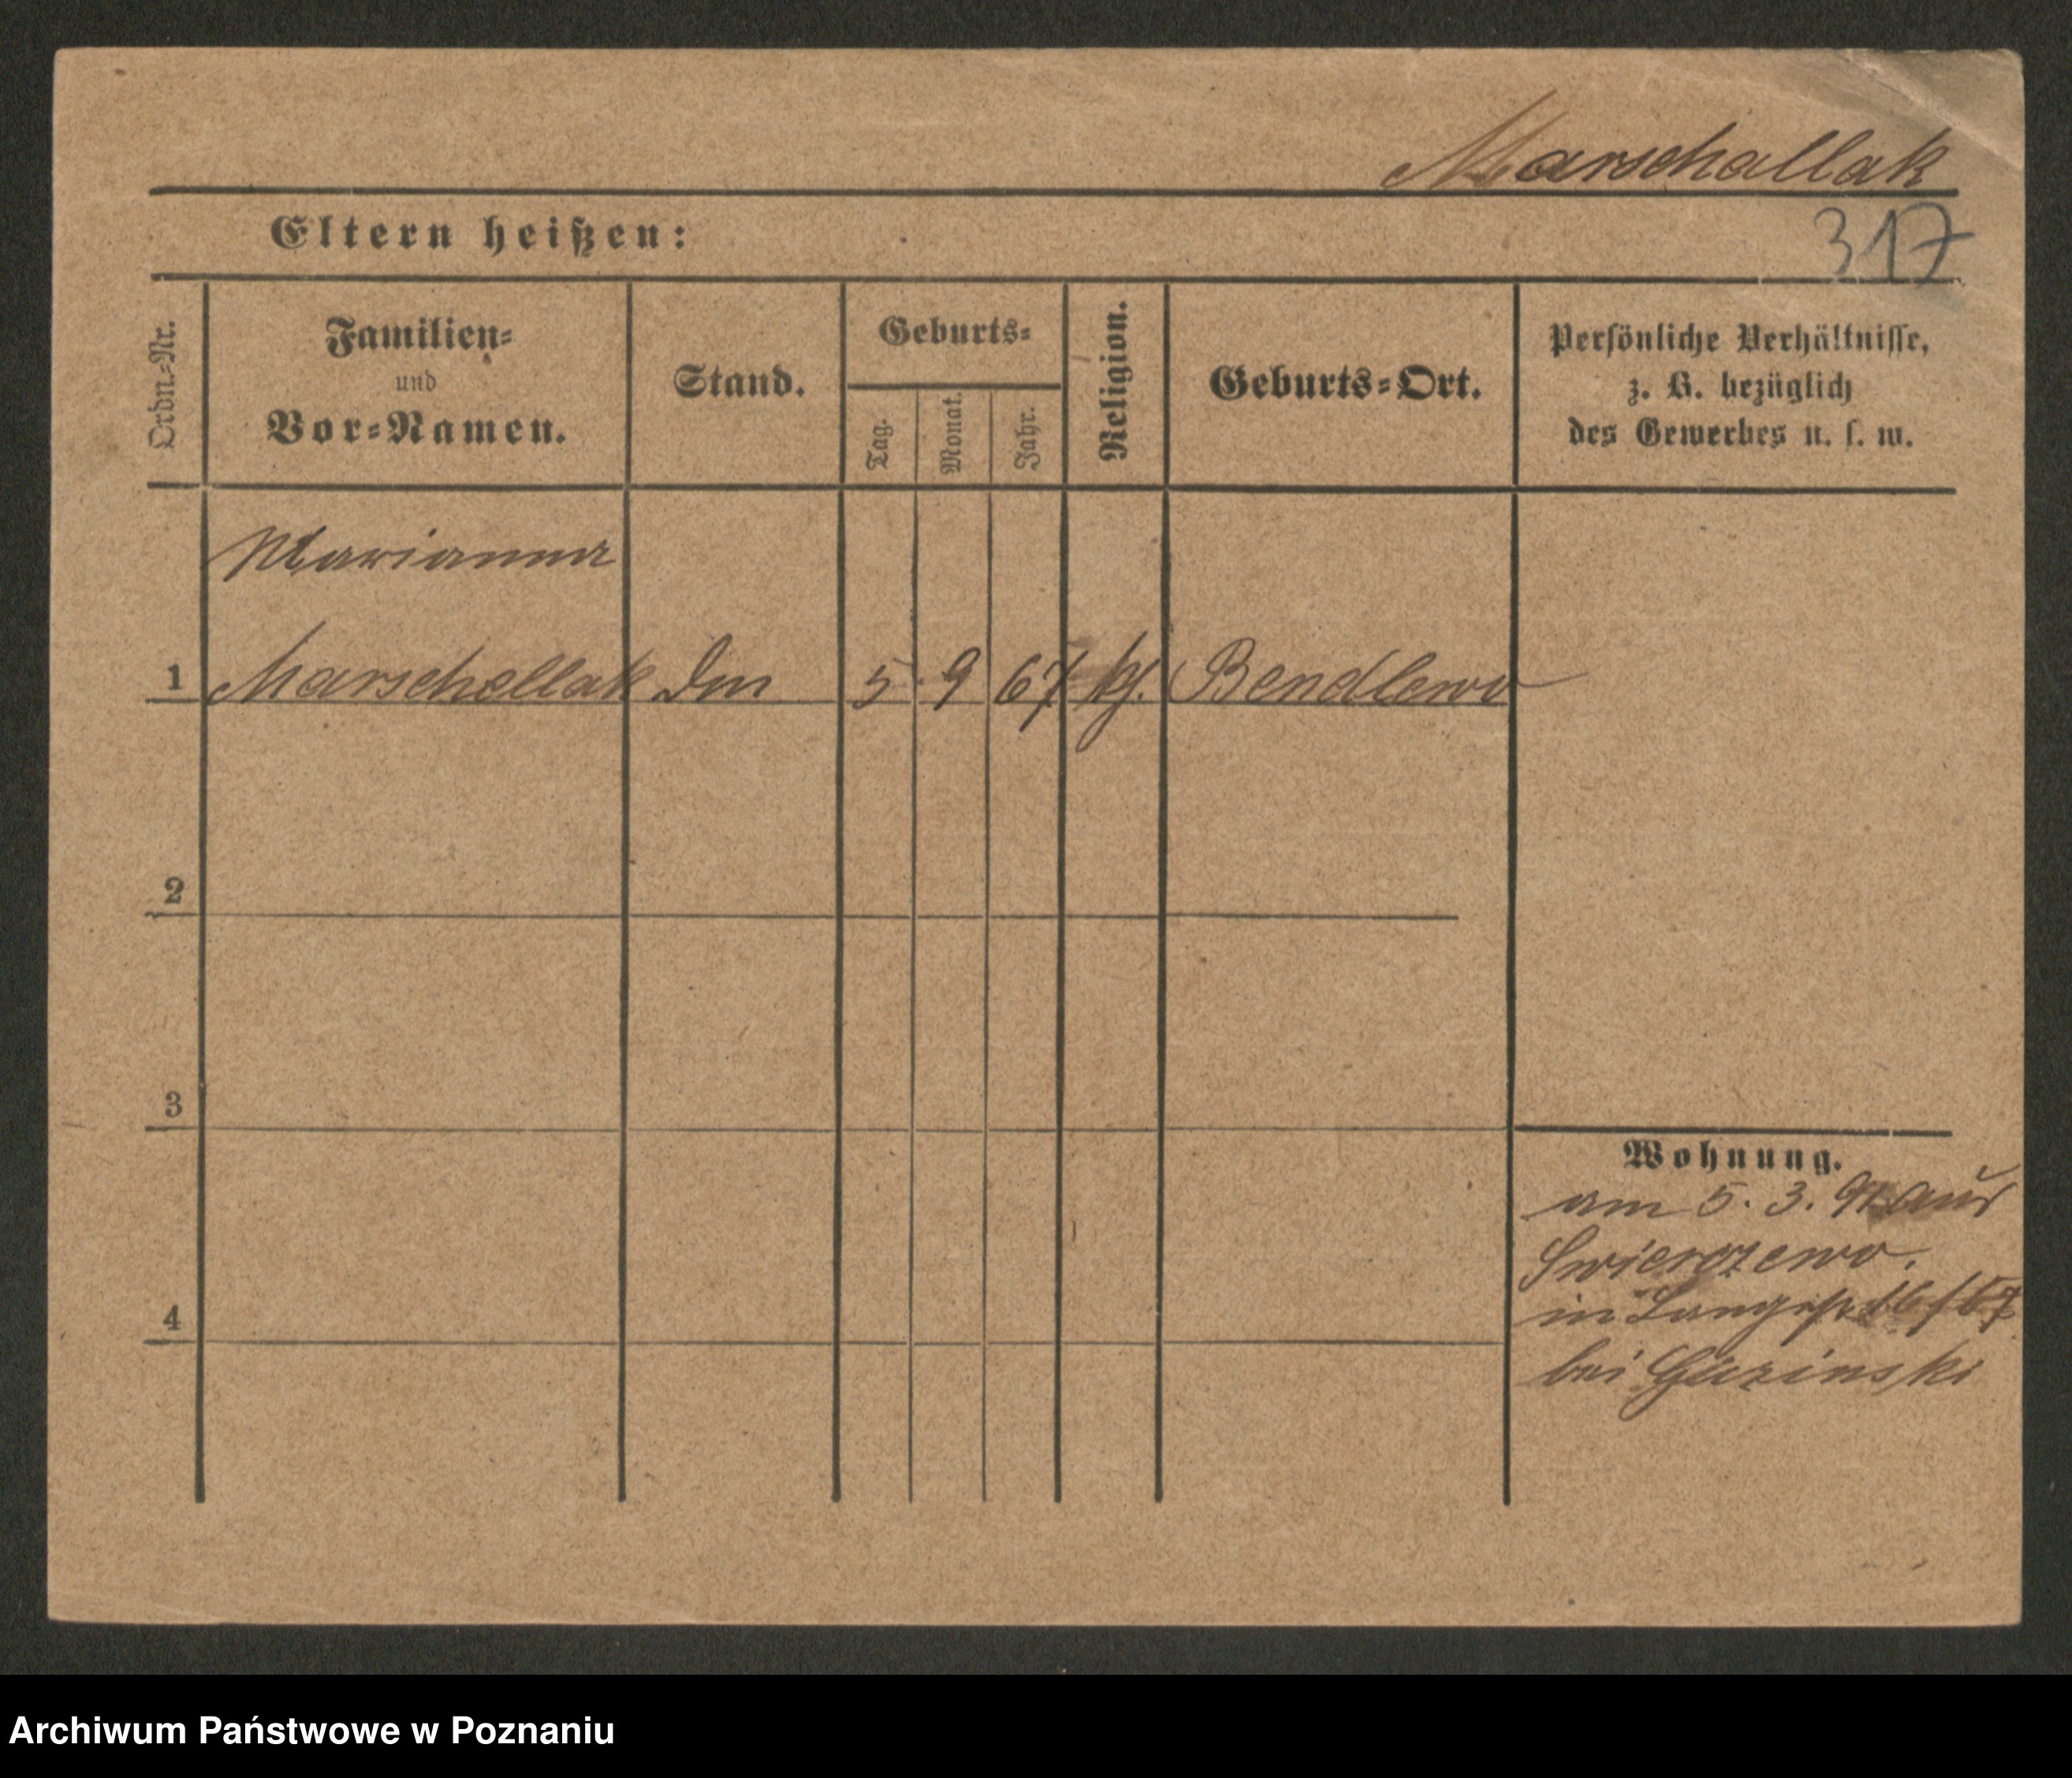 Marschallak
317
Eltern heißen:
Ordn.-Nr.
Familien-
und
Vor-Namen.
Stand.
Geburts-
Tag.
Monat.
Jahr.
Religion.
Geburts-Ort.
Persönliche Verhältnisse,
z. B. bezüglich
des Gewerbes u. s. w.
Marianna
1 Marschallak 5 9 67 Bendlewo
2
3
4
Wohnung.
am 5. 3. 91 aus
Swierczewo.
in
bei
Archiwum Państwowe w Poznaniu